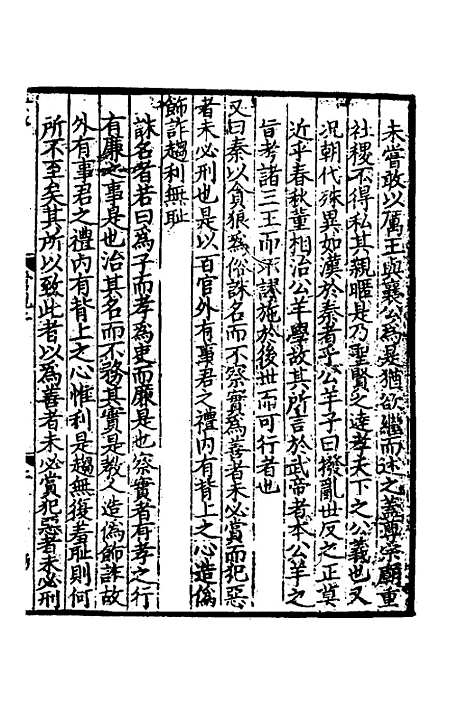 未嘗敢以厲王與襄公為是猶欲繼而述之蓋尊宗廟重
社稷不得私其親暱是乃聖賢之達孝天下之公義也又
况朝代殊異如漢於秦者乎公羊子曰撥亂世反之正莫
近乎春秋董相治公羊學故其所言於武帝者本公羊之
旨考諸三王而不謬施於後世而可行者也
又曰秦以貪狼為俗誅名而不察實為善者未必賞而犯惡
者未必刑也是以百官外有事君之禮内有背上之心造偽
飾詐趨利無耻
誅名者若曰為子而孝為吏而廉是也察實者有孝之行
有廉之事是也治其名而不務其實是教人造偽飾誅故
外有事君之禮内有背上之心惟利是趨無復羞耻則何
所不至矣其所以致此者以為善者未必賞犯惡者未必刑